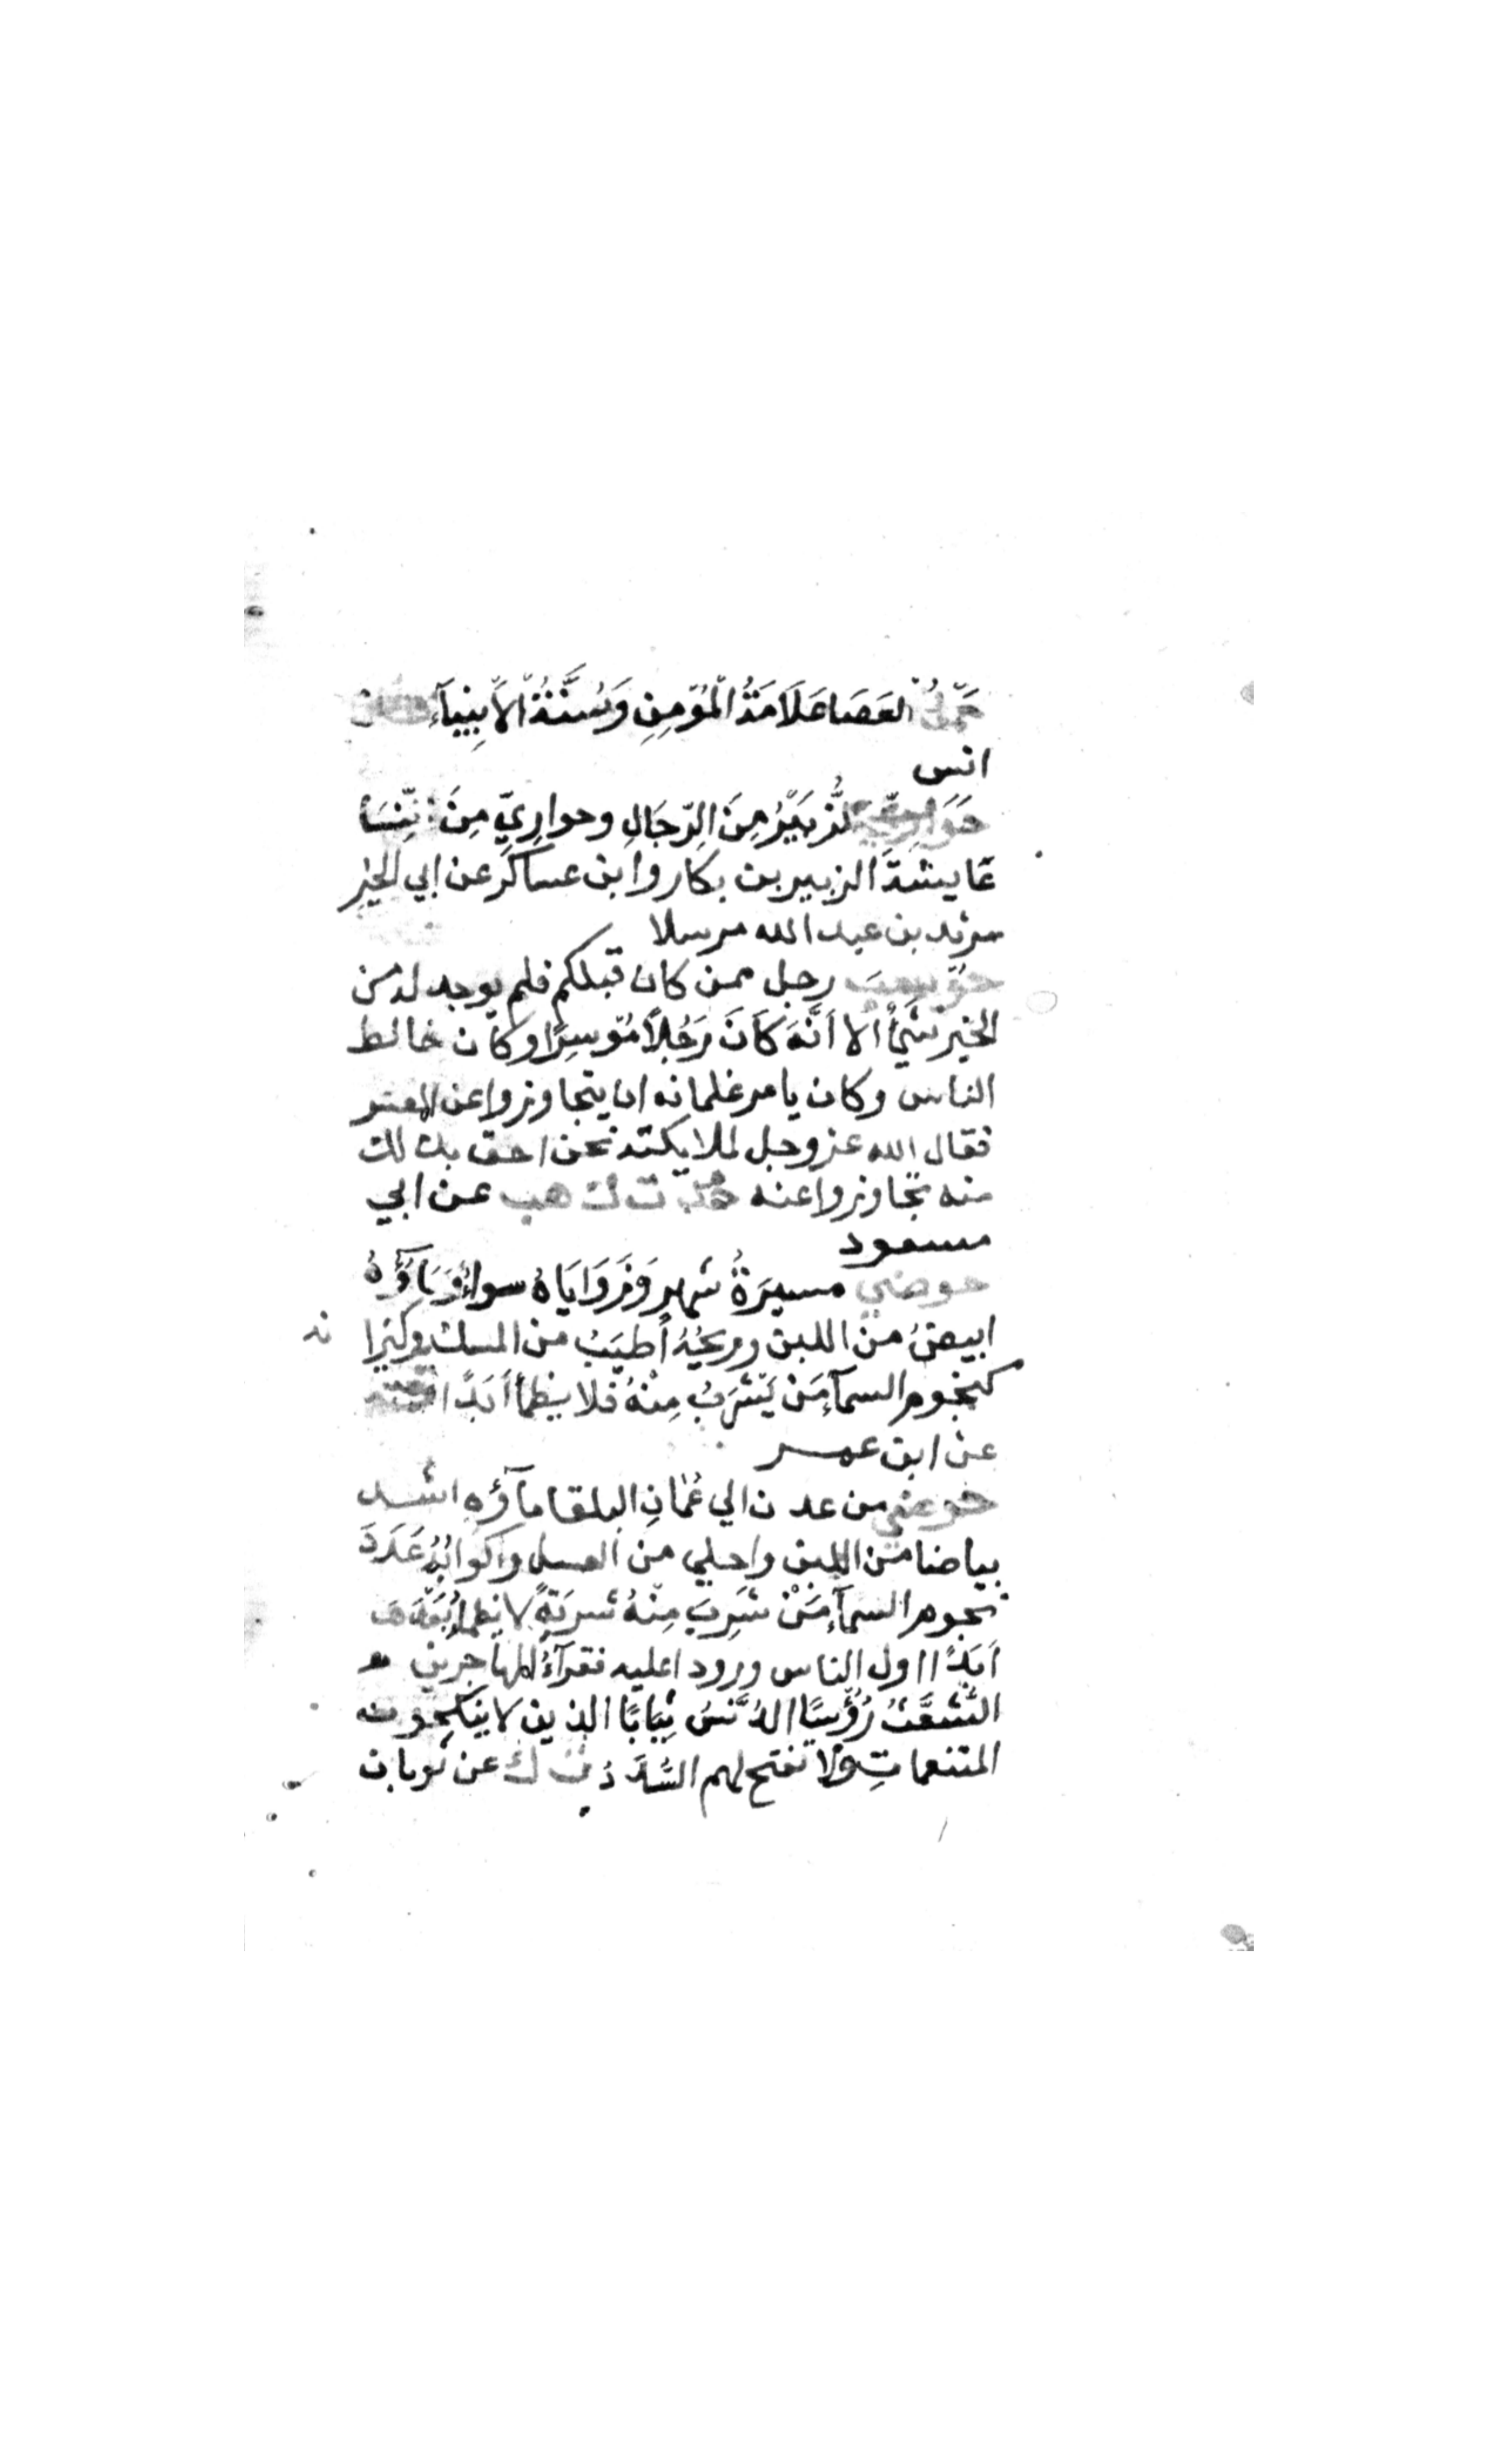 حَمْلُ العَصَا عَلَامَةُ الْمُؤْمِنِ وَسُنَّةُ الْأَنْبِيَآءِ
انس
حَوَارِيّ الزُّبَيْرُ مِنَ الرِّجَالِ وحوارِيّ مِنَ النِّسَا
عَايشةَ الزبير بن بكار وابن عساكر عن ابي الخير
مرثد بن عبد الله مرسلا
حوْسِبَ رجل ممن كان قبلكم فلم يوجد له من
الخير شَيْأ الا اَنَّهُ كَانَ رَجُلاً مُوْسِرًا وكان خالط
الناس وكان يامر غلمانه ان يتجاوزوا عن المعسر
فقال الله عز وجل لملايكته نحن احق بذلك
منه تجاوزوا عنه خد ت ك هب عن ابي
مسعود
حوضي مسيرَةُ شهرٍ وَزَوَايَاهُ سواءٌ وَمَآؤُهُ
ابيضُ من اللبن وريحُهُ أطيَبُ من المسك وكيزا
نه
كنجوم السمآءِ مَن يَشْرَبُ مِنْهُ فلا يظمأ اَبَدًا
عن ابن عمر
حوضي من عدن الي عُمَانِ البلقا مآؤه اشد
بياضا من اللبن واحلي من العسل واكوابُهُ عَدَدَ
نجوم السمآءِ مَنْ شَرِبَ مِنْهُ شَربَةً لا يظمأ بَعْدَهَا
اَبَدًا اول الناس ورودا عليه فقرآءُ المهاجرين
الشُّعْثُ رُؤُسًا الدُّنْسُ ثِيَابًا الذين لا ينكِحون
المتنعماتِ ولا تفتح لهم السُّدَدُ ت ك عن ثوبان